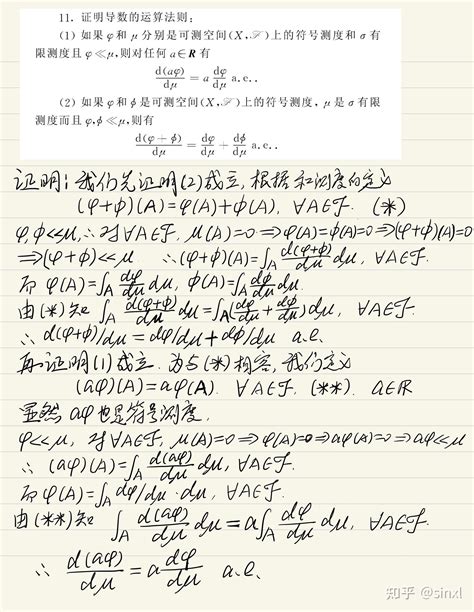 11. 证明导数的运算法则:
(1) 如果 φ 和 μ 分别是可测空间(X,ℱ)上的符号测度和 σ 有
限测度且 φ≪μ,则对任何 a∈R 有
d(aφ)/dμ = a dφ/dμ a.e..
(2) 如果 φ 和 ϕ 是可测空间(X,ℱ)上的符号测度, μ 是 σ 有限
测度而且 φ,ϕ≪μ,则有
d(φ+ϕ)/dμ = dφ/dμ + dϕ/dμ a.e..
证明: 我们先证明(2)成立, 根据和测度的定义
(φ+ϕ)(A)=φ(A)+ϕ(A), ∀A∈ℱ. (*)
φ,ϕ≪μ, ∴ 对∀A∈ℱ, μ(A)=0⇒φ(A)=ϕ(A)=0⇒(φ+ϕ)(A)=0
⇒(φ+ϕ)≪μ ∴(φ+ϕ)(A)=∫_A d(φ+ϕ)/dμ dμ, ∀A∈ℱ.
而 φ(A)=∫_A dφ/dμ dμ, ϕ(A)=∫_A dϕ/dμ dμ.
由(*)知 ∫_A d(φ+ϕ)/dμ dμ=∫_A(dφ/dμ+dϕ/dμ)dμ, ∀A∈ℱ.
∴ d(φ+ϕ)/dμ=dφ/dμ+dϕ/dμ a.e.
再证明(1)成立. 为与(*)相容, 我们定义
(aφ)(A)=aφ(A). ∀A∈ℱ, (**). a∈R
显然 aφ 也是符号测度.
φ≪μ, 对∀A∈ℱ, μ(A)=0⇒φ(A)=0⇒aφ(A)=0⇒aφ≪μ
∴ (aφ)(A)=∫_A d(aφ)/dμ dμ, ∀A∈ℱ.
而 φ(A)=∫_A dφ/dμ·dμ, ∀A∈ℱ.
由(**)知 ∫_A d(aφ)/dμ dμ=a∫_A dφ/dμ dμ, ∀A∈ℱ.
∴ d(aφ)/dμ=a dφ/dμ a.e.
知乎 @sinxl